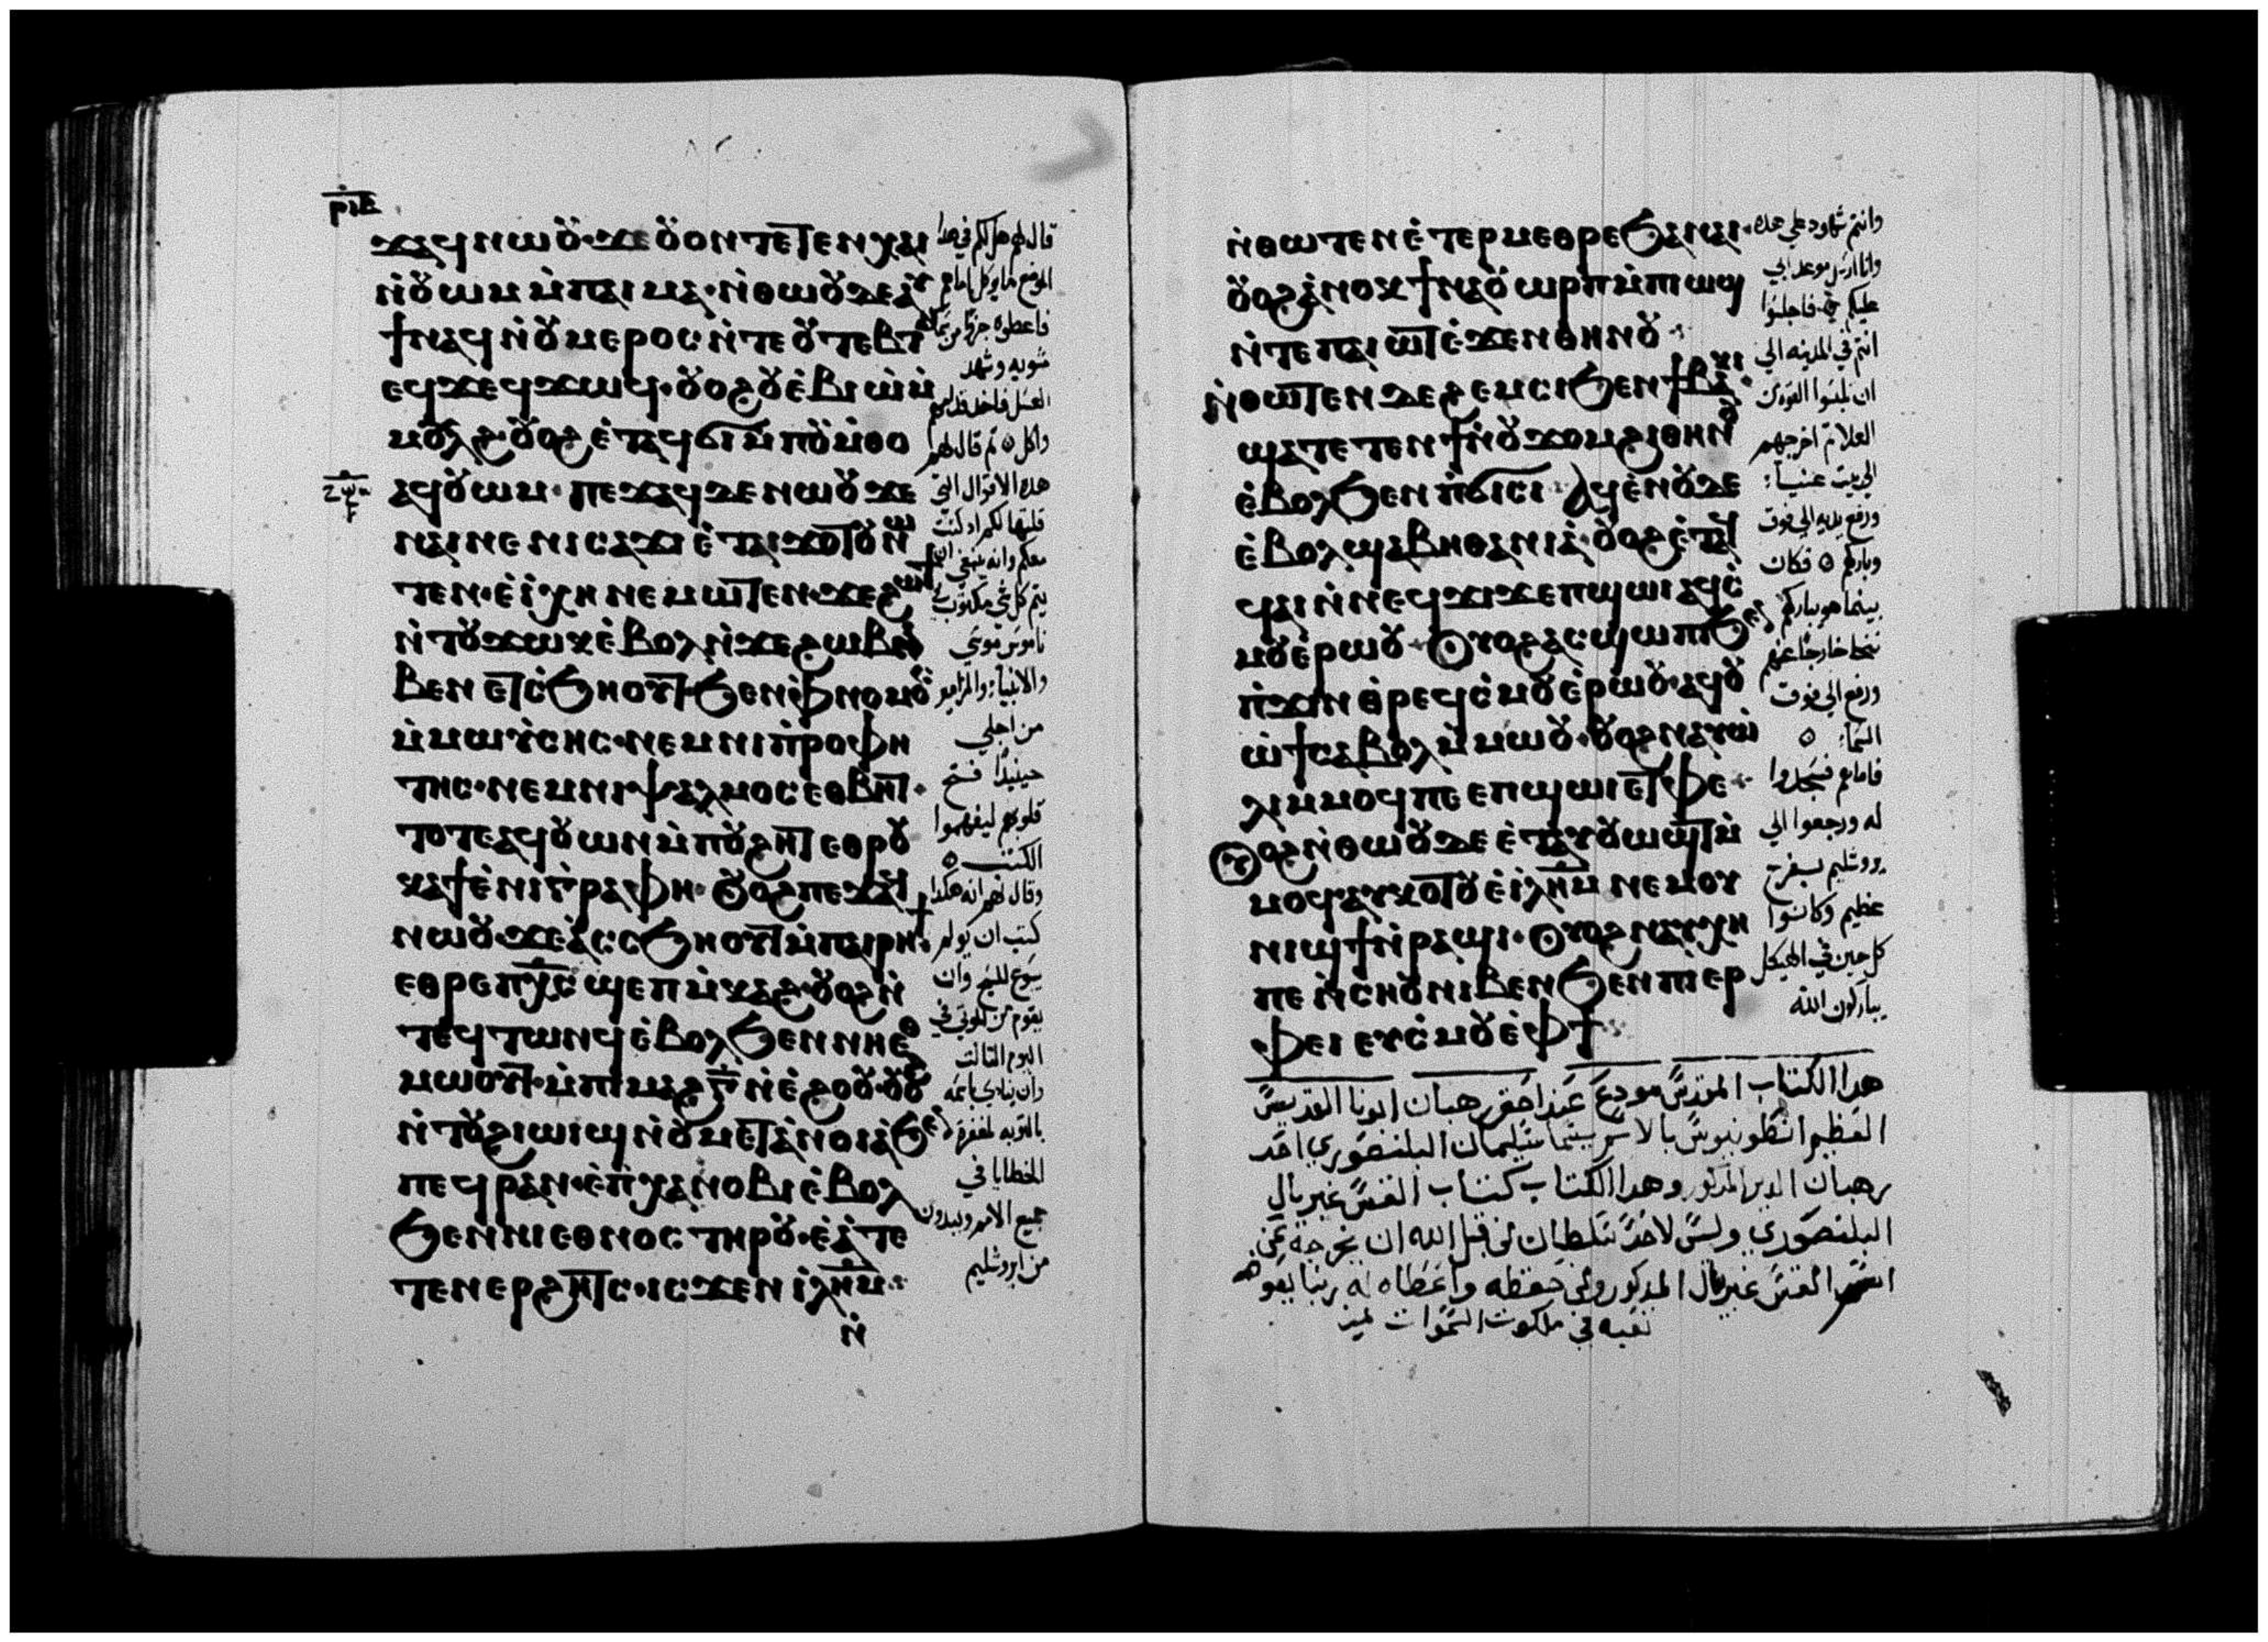 ⲣⲓⲉ
ϫⲁϥ ⲛⲱⲟⲩ ϫⲉ ⲟⲩⲟⲛ ⲧⲉⲧⲉⲛ ⲭⲁⲓ
ⲛ̀ⲟⲩⲱⲙ ⲙ̀ⲡⲁⲓⲙⲁ· ⲛ̀ⲑⲱⲟⲩ ⲇⲉ ⲁⲩ
ϯ ⲛⲁϥ ⲛ̀ⲟⲩⲙⲉⲣⲟⲥ ⲛ̀ⲧⲉ ⲟⲩⲧⲉⲃⲧ
ⲉϥϫⲉϥϫⲱϥ· ⲟⲩⲟϩ ⲟⲩⲉ̀ⲃⲓⲱ̀ ⲙ̀
ⲙⲟⲩⲗϩ· ⲟⲩⲟϩ ⲉ̀ⲧⲁϥϭⲓ ⲙ̀ⲡⲟⲩⲙ̀ⲑⲟ
ⲁϥⲟⲩⲱⲙ· ⲡⲉϫⲁϥ ⲇⲉ ⲛⲱⲟⲩ ϫⲉ
ⲛⲁⲓ ⲛⲉ ⲛⲓⲥⲁϫⲓ ⲉ̀ⲧⲁⲓϫⲟⲧⲟⲩ ⲛⲱ
ⲧⲉⲛ· ⲉⲓ̀ⲭⲏ ⲛⲉⲙⲱⲧⲉⲛ· ϫⲉ ϩⲱϯ
ⲛ̀ⲧⲟⲩϫⲱⲕ ⲉ̀ⲃⲟⲗ ⲛ̀ϫⲉ ϩⲱⲃ ⲛⲓ
ⲃⲉⲛ ⲉⲧⲥ̀ϧⲏⲟⲩⲧ ϧⲉⲛ ⲫ̀ⲛⲟⲙⲟⲥ
ⲙ̀ⲙⲱⲩ̀ⲥⲏⲥ· ⲛⲉⲙ ⲛⲓⲡ̀ⲣⲟⲫⲏ
ⲧⲏⲥ· ⲛⲉⲙ ⲛⲓⲯⲁⲗⲙⲟⲥ ⲉⲑⲃⲏⲧ·
ⲧⲟⲧⲉ ⲁϥⲟⲩⲱⲛ ⲙ̀ⲡⲟⲩϩⲏⲧ ⲉⲑⲣⲟⲩ
ⲕⲁϯ ⲉ̀ⲛⲓⲅ̀ⲣⲁⲫⲏ· ⲟⲩⲟϩ ⲡⲉϫⲁϥ
ⲛⲱⲟⲩ ϫⲉ ⲁ̀ⲥⲥϧⲏⲟⲩⲧ ⲙ̀ⲡⲁⲓⲣⲏϯ
ⲉⲑⲣⲉ ⲡⲭ̅ⲥ̅ ϣⲉⲡ ⲙ̀ⲕⲁϩ· ⲟⲩⲟϩ ⲛ̀
ⲧⲉϥⲧⲱⲛϥ ⲉ̀ⲃⲟⲗ ϧⲉⲛ ⲛⲏⲉⲑ
ⲙⲱⲟⲩⲧ· ⲙ̀ⲡⲓⲙⲁϩ ⲅ̅ ⲛ̀ⲉ̀ϩⲟⲟⲩ· ⲟⲩⲟϩ
ⲛ̀ⲧⲟⲩϩⲓⲱⲓϣ ⲛ̀ⲟⲩⲙⲉⲧⲁ̀ⲛⲟⲓⲁ̀ ϧⲉⲛ
ⲡⲉϥⲣⲁⲛ· ⲉ̀ⲡ̀ⲭⲁⲛⲟⲃⲓ ⲉ̀ⲃⲟⲗ
ϧⲉⲛ ⲛⲓⲉⲑⲛⲟⲥ ⲧⲏⲣⲟⲩ· ⲉ̀ⲁ̀ⲧⲉ
ⲧⲉⲛⲉⲣϩⲏⲧⲥ· ⲓⲥϫⲉⲛ ⲓⲗ̅ⲏ̅ⲙ̅
ⲛ̀
قال لهم هل لكم في هذا
الموضع ما يوكل اما هم
فاعطوه جزءًا من سمك
مشويه وشهد
العسل فاخد قدامهم
واكل ٥ ثم قال لهم
هده الاقوال التي
قلتها لكم اد كنت
معكم وانه ينبغي ان
يتم كل شي مكتوب في
ناموس موسي
والانبياء والمزامير
من اجلي
حينيدًا فتح
قلوبهم ليفهموا
الكتب ٥
وقال لهم انه هكدا
كتب ان يولم
يسوع المسيح وان
يقوم من الموتي في
اليوم التالت
وان ينادي باسمه
بالتوبه لمغفرة
الخطايا في
جميع الامم ويبدون
من ايروشليم
ⲛ̀ⲑⲱⲧⲉⲛ ⲉ̀ⲧⲉⲣⲙⲉⲑⲣⲉ ϧⲁ ⲛⲁⲓ·
ⲟⲩⲟϩ ⲁ̀ⲛⲟⲕ ϯⲛⲁⲟⲩⲱⲣⲡ ⲙ̀ⲡⲓⲱϣ
ⲛ̀ⲧⲉ ⲡⲁⲓⲱⲧ ⲉ̀ϫⲉⲛ ⲑⲏⲛⲟⲩ
ⲛ̀ⲑⲱⲧⲉⲛ ⲇⲉ ϩⲉⲙⲥⲓ ϧⲉⲛ ϯⲃⲁⲕⲓ
ϣⲁⲧⲉⲧⲉⲛϯ ⲛ̀ⲟⲩϫⲟⲙ ϩⲓⲑⲏⲛⲟⲩ
ⲉ̀ⲃⲟⲗ ϧⲉⲛ ⲡ̀ϭⲓⲥⲓ ⲁϥⲉⲛⲟⲩ ⲇⲉ
ⲉ̀ⲃⲟⲗ ϣⲁ ⲃⲏⲑⲁⲛⲓⲁ̀· ⲟⲩⲟϩ ⲉ̀ⲧⲁϥ
ϥⲁⲓ ⲛ̀ⲛⲉϥϫⲓϫ ⲉⲡϣⲱⲓ ⲁϥⲥ̀
ⲙⲟⲩ ⲉ̀ⲣⲱⲟⲩ· ⲟⲩⲟϩ ⲁⲥϣⲱⲡⲓ ϧⲉⲛ
ⲡ̀ϫⲓⲛⲑ̀ⲣⲉϥⲥ̀ⲙⲟⲩ ⲉ̀ⲣⲱⲟⲩ· ⲁϥⲟⲩ
ⲱ̀ϯ ⲥⲁⲃⲟⲗ ⲙ̀ⲙⲱⲟⲩ· ⲟⲩⲟϩ ⲛⲁⲩⲱ̀
ⲗⲓ ⲙ̀ⲙⲟϥ ⲡⲉ ⲉⲡϣⲱⲓ ⲉⲧⲫⲉ
ⲟⲩⲟϩ ⲛ̀ⲑⲱⲟⲩ ⲇⲉ ⲉ̀ⲧⲁⲩⲟⲩⲱϣⲧ ⲙ̀
ⲙⲟϥ ⲁⲩⲕⲟⲧⲟⲩ ⲉ̀ⲓⲗ̅ⲏ̅ⲙ̅ ⲛⲉⲙ ⲟⲩ
ⲛⲓϣϯ ⲛ̀ⲣⲁϣⲓ· ⲟⲩⲟϩ ⲛⲁⲩⲭⲏ
ⲡⲉ ⲛ̀ⲥⲏⲟⲩ ⲛⲓⲃⲉⲛ ϧⲉⲛ ⲡⲓⲉⲣ
ⲫⲉⲓ ⲉⲩⲥ̀ⲙⲟⲩ ⲉ̀ⲫϯ
وانتم شهود علي هده
وانا ارسل موعد ابي
عليكم ٥ فاجلسوا
انتم في المدينه الي
ان تلبسوا القوه من
العلا ثم اخرجهم
الي بيت عنيا:
ورفع يديه الي فوق
وباركهم ٥ فكان
بينما هو يباركهم
تنحا خارجًا عنهم
ورفع الي فوق
السما ٥
فاماهم فسجدوا
له ورجعوا الي
يروشليم بفرح
عظيم وكانوا
كل حين في الهيكل
يباركون الله
هدا الكتاب المقدس مودع عند احقر رهبان ابونا القديس
العظيم انطونيوس بالاسم سليمان البلنصوري احد
رهبان الدير المدكور وهدا الكتاب كتاب القس غبريال
البلنصوري وليس لاحد سلطان من قبل الله ان يخرجه عن
القس غبريال المدكور ومن حفظه واعطاه له ربنا يعوضه
في ملكوت السموات امين